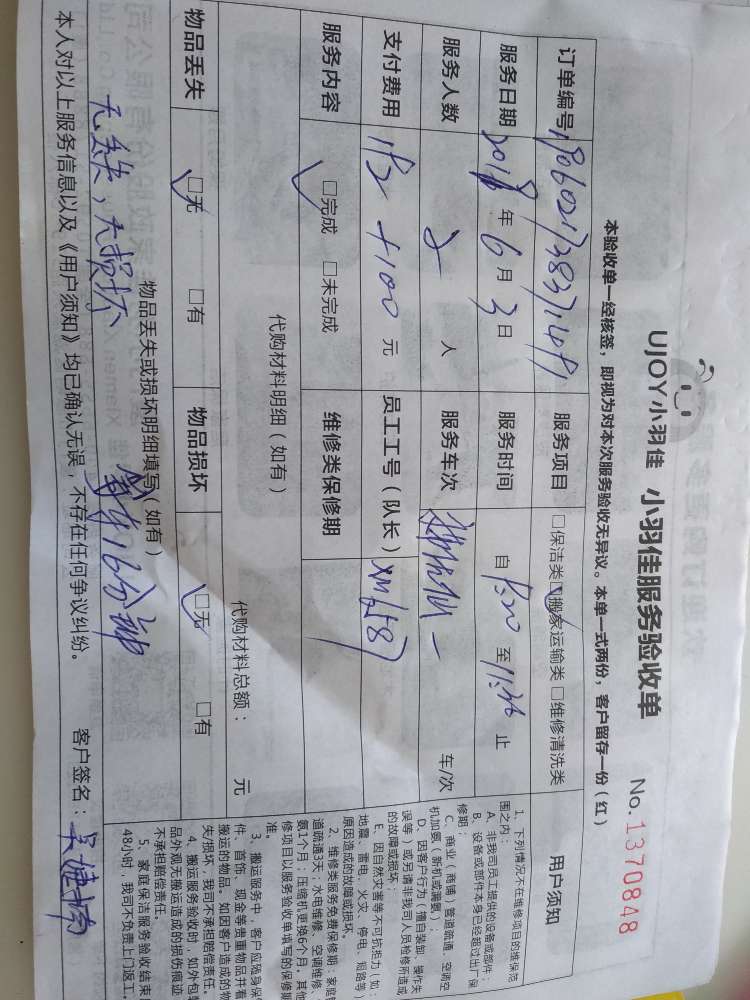 UJOY小羽佳 小羽佳服务验收单 No.1370848
本验收单一经核签，即视为对本次服务验收无异议。本单一式两份，客户留存一份（红）
订单编号 服务项目 □保洁类 □搬家运输类 □维修清洗类
服务日期 2018年6月3日 服务时间 自 至 止
服务人数 2 人 服务车次 车/次
支付费用 +100 元 员工工号（队长）
服务内容 □完成 □未完成 维修类保修期
代购材料明细（如有） 代购材料总额： 元
物品丢失 □无 □有 物品损坏 □无 □有
物品丢失或损坏明细填写（如有）
无丢失，无损坏
本人对以上服务信息以及《用户须知》均已确认无误，不存在任何争议纠纷。 客户签名：
用户须知
1、下列情况不在维修项目的维保范
围之内：
A、非我司员工提供的设备或部件；
B、设备或部件本身已经超过出厂保
修期；
C、商业（商铺）管道疏通、空调空
机加氨（新机或漏氨）
D、因客户行为（擅自装卸、操作失
误等）或另请非我司人员检修所造成
的故障或损坏；
E、因自然灾害等不可抗热力（如：
地震、雷电、火灾、停电、短路等）
原因造成的故障或损坏。
2、维修类服务免费保修期：家庭管
道疏通3天；水电维修、空调维修、
氨1个月；压缩机更换6个月。其他
修项目以服务验收单填写的保修期
准。
3、搬运服务中，客户应随身保
件、首饰、现金等贵重物品并看
搬运的物品。如因客户造成的物
失/损坏，我司不承担赔偿责任。
4、搬运服务验收时，如外包装
品外观无搬运造成的损伤痕迹
不承担赔偿责任。
5、家庭保洁服务验收结束
48小时，我司不负责上门返工。